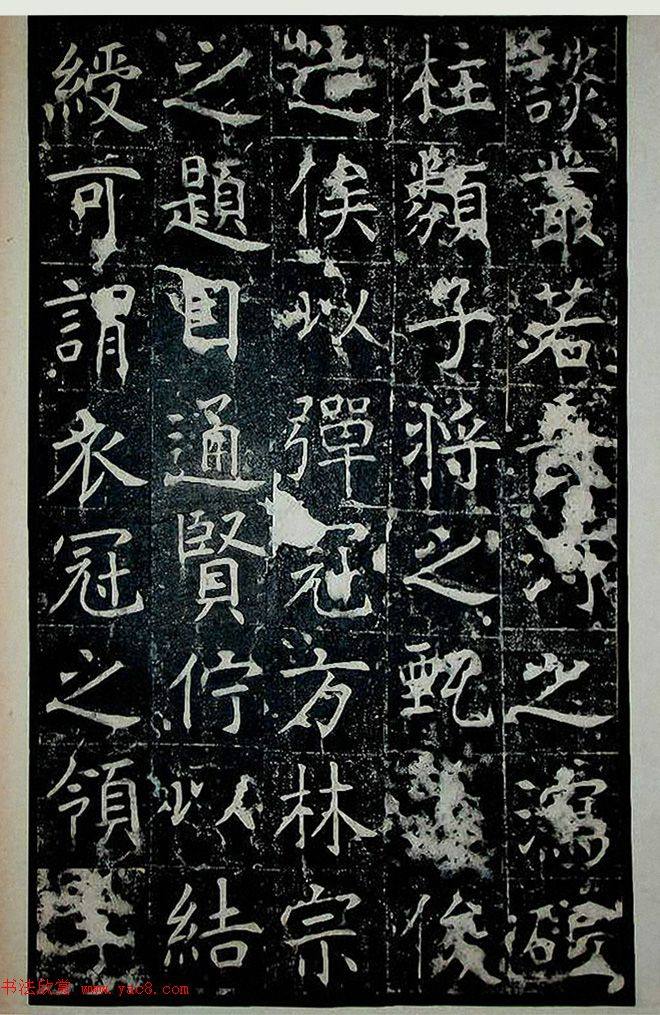 談叢若河之瀉砥
柱類子將之甄俊
造俟以彈冠方林宗
之題目通賢佇以結
綬可謂衣冠之領
书法欣赏 www.yac8.com